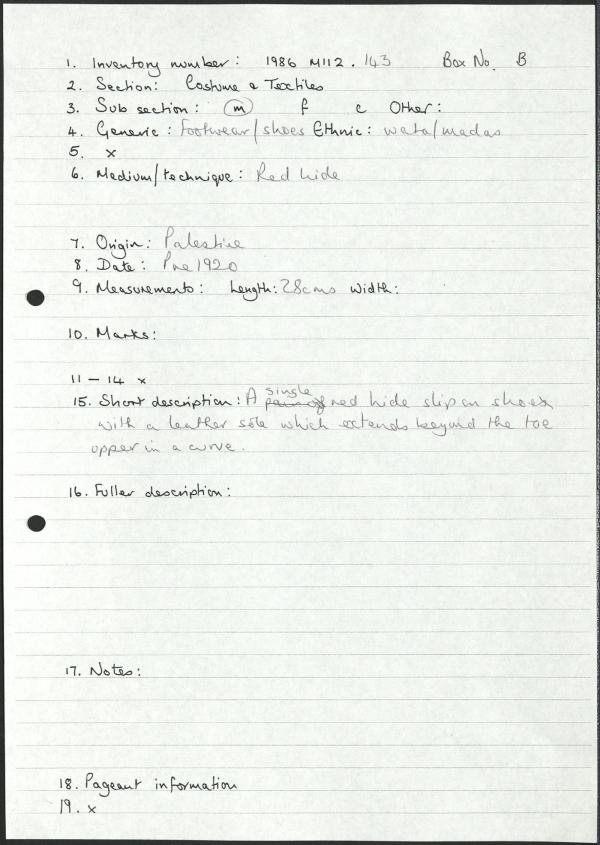 1. Inventory number: 1986 M112.143 Box No. B
2. Section: Costume & Textiles
3. Sub section: m f c Other:
4. Generic: Footwear/shoes Ethnic: wata/madas
5. x
6. Medium/technique: Red hide
7. Origin: Palestine
8. Date: Pre 1920
9. Measurements: Length: 28cms Width:
10. Marks:
11 – 14 x
single
15. Short description: A pair of red hide slip on shoes
with a leather sole which extends beyond the toe
upper in a curve.
16. Fuller description:
17. Notes:
18. Pageant information
19. x